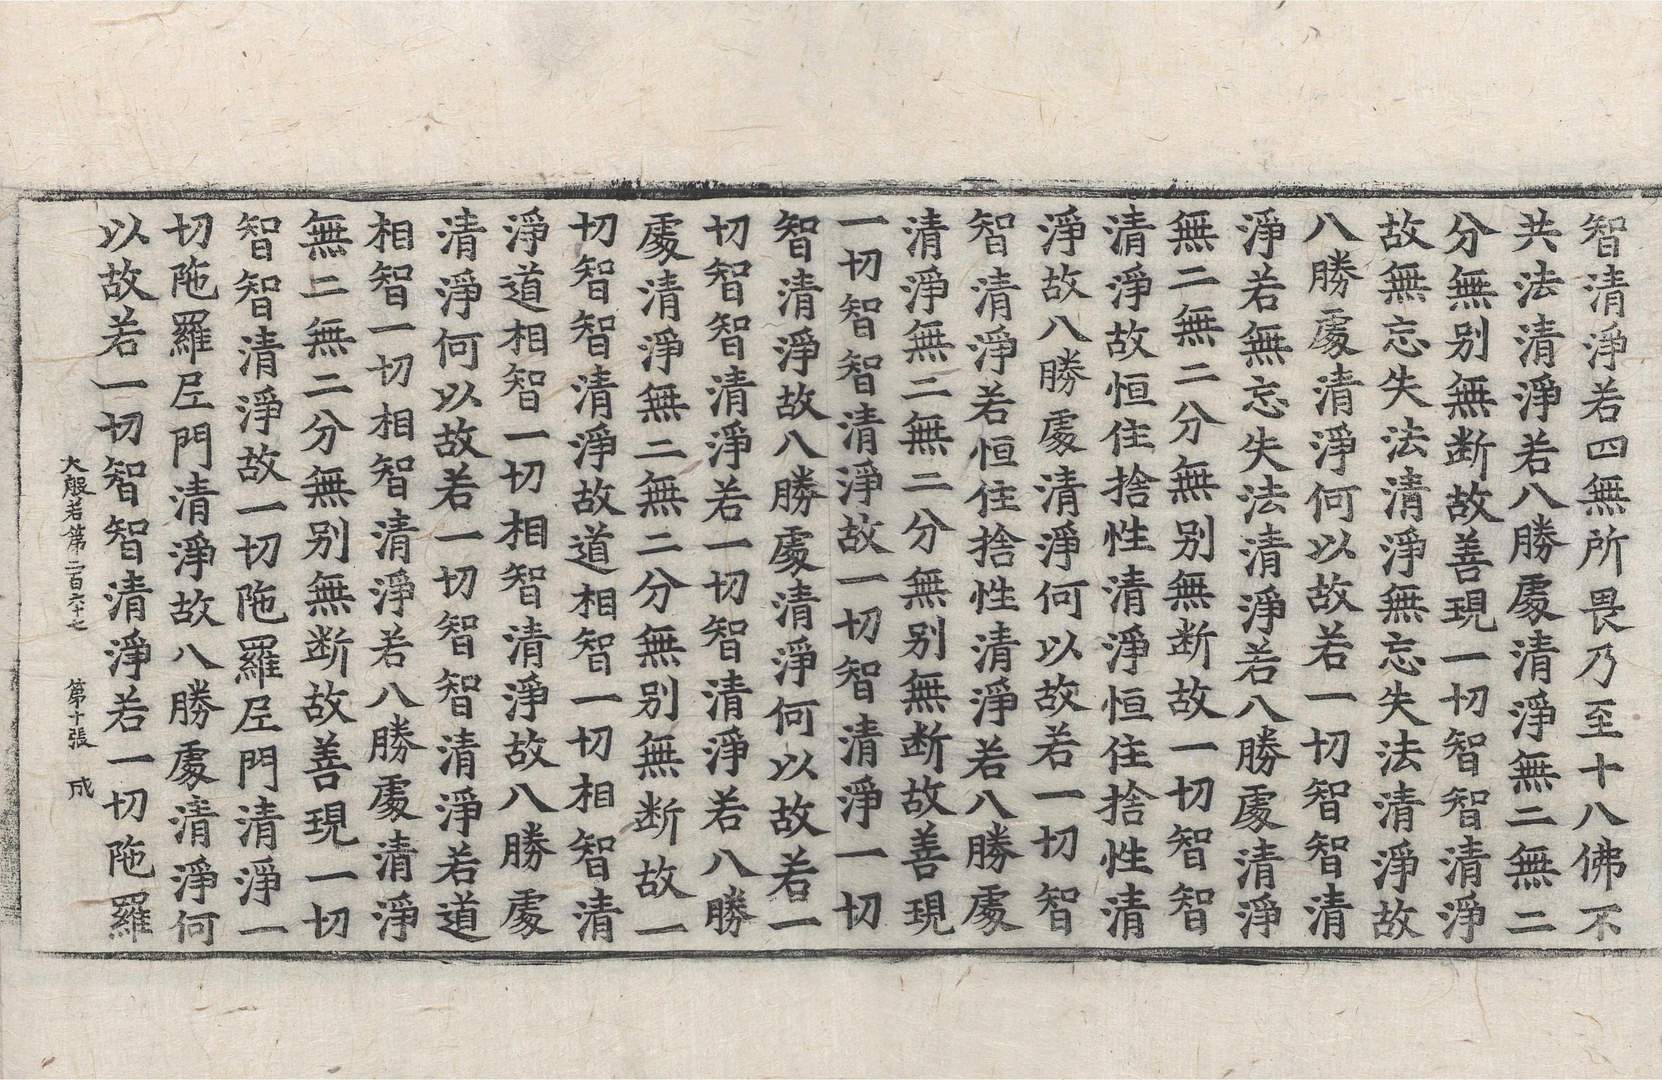 智清淨若四無所畏乃至十八佛不
共法清淨若八勝處清淨無二無二
分無别無断故善現一切智智清淨
故無忘失法清淨無忘失法清淨故
八勝處清淨何以故若一切智智清
淨若無忘失法清淨若八勝處清淨
無二無二分無别無断故一切智智
清淨故恒住捨性清淨恒住捨性清
淨故八勝處清淨何以故若一切智
智清淨若恒住捨性清淨若八勝處
清淨無二無二分無别無断故善現
一切智智清淨故一切智清淨一切
智清淨故八勝處清淨何以故若一
切智智清淨若一切智清淨若八勝
處清淨無二無二分無别無断故一
切智智清淨故道相智一切相智清
淨道相智一切相智清淨故八勝處
清淨何以故若一切智智清淨若道
相智一切相智清淨若八勝處清淨
無二無二分無别無断故善現一切
智智清淨故一切陁羅尼門清淨一
切陁羅尼門清淨故八勝處清淨何
以故若一切智智清淨若一切陁羅
大般若第二百六十七 第十張 成